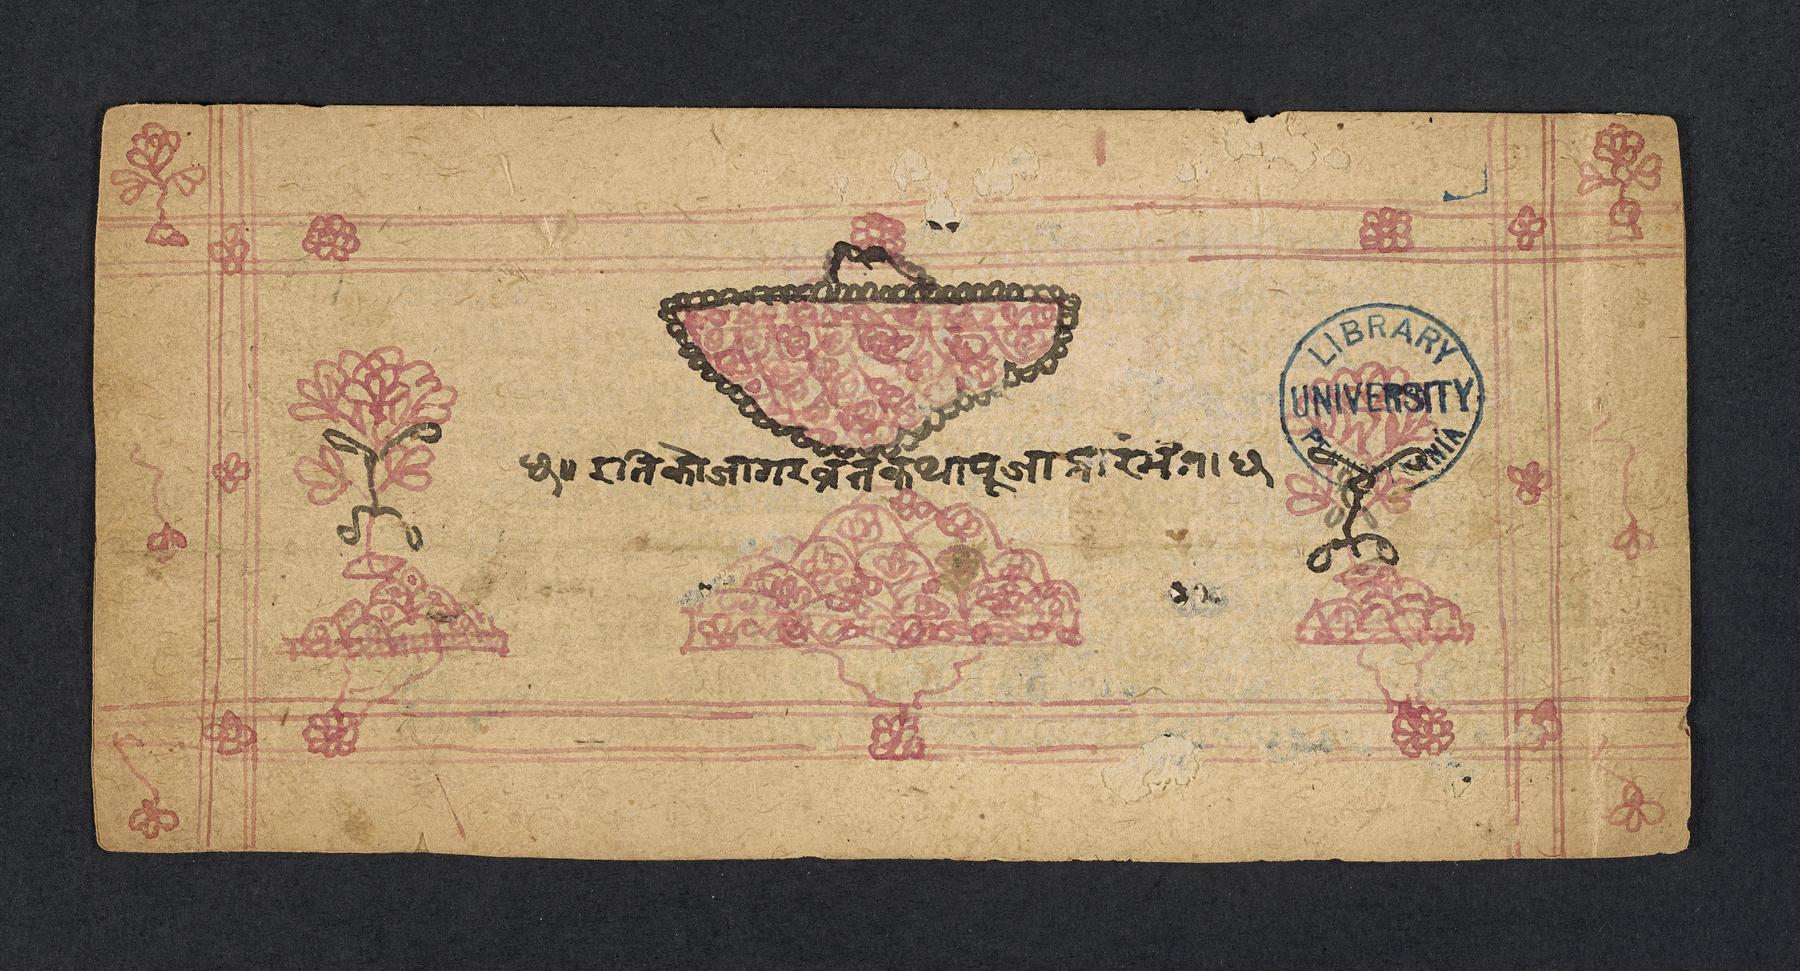 छ॥ इति कोजागरव्रतकथापूजा प्रारंभः। छ
LIBRARY
UNIVERSITY